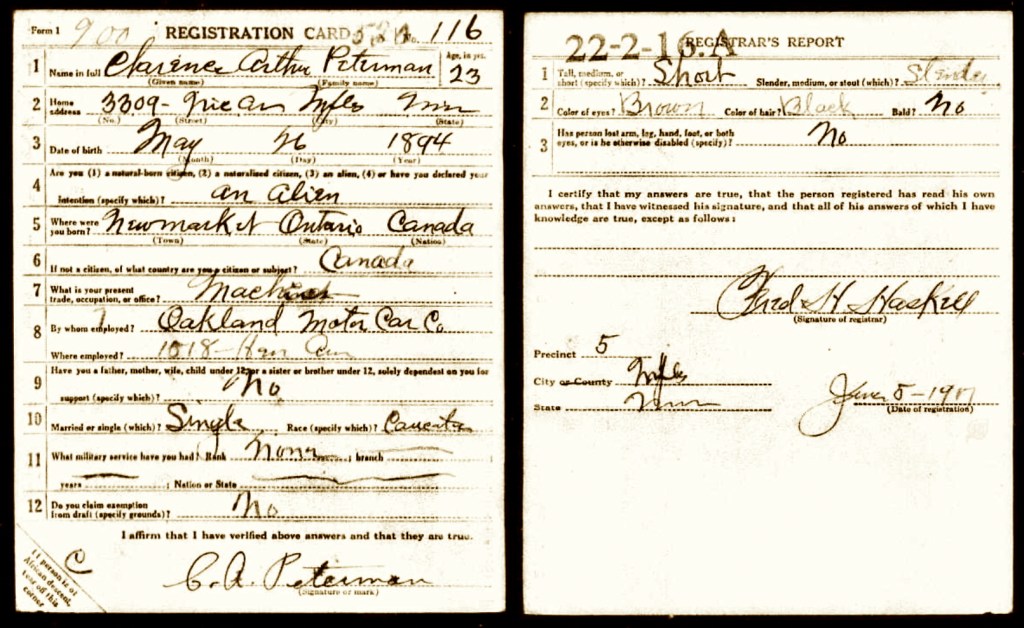 Form 1 900 REGISTRATION CARD No. 116
1 Name in full Clarence Arthur Peterman Age, in yrs. 23
(Given name) (Family name)
2 Home address 3309- Nic av Mpls Minn
(No.) (Street) (City) (State)
3 Date of birth May 26 1894
(Month) (Day) (Year)
Are you (1) a natural-born citizen, (2) a naturalized citizen, (3) an alien, (4) or have you declared your
4 intention (specify which)? an Alien
5 Where were you born? Newmarket Ontario Canada
(Town) (State) (Nation)
6 If not a citizen, of what country are you a citizen or subject? Canada
7 What is your present trade, occupation, or office? Machinist
8 By whom employed? Oakland Motor Car Co.
Where employed? 1018- Hen
9 Have you a father, mother, wife, child under 12, or a sister or brother under 12, solely dependent on you for
support (specify which)? No
10 Married or single (which)? Single Race (specify which)?
11 What military service have you had? Rank None ; branch
years ; Nation or State
12 Do you claim exemption from draft (specify grounds)? No
I affirm that I have verified above answers and that they are true.
C. A. Peterman
(Signature or mark)
C
If person is of
African descent,
tear off this
corner
22-2-16.A REGISTRAR'S REPORT
1 Tall, medium, or short (specify which)? Short Slender, medium, or stout (which)? Slender
2 Color of eyes? Brown Color of hair? Black Bald? No
3 Has person lost arm, leg, hand, foot, or both eyes, or is he otherwise disabled (specify)? No
I certify that my answers are true, that the person registered has read his own
answers, that I have witnessed his signature, and that all of his answers of which I have
knowledge are true, except as follows:
Fred H Haskell
(Signature of registrar)
Precinct 5
City or County Mpls
State Minn
June 5-1917
(Date of registration)